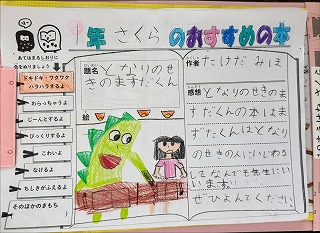 年 さくら のおすすめの本
あてはまるしおりに
色をぬりましょう
ドキドキ・ワクワク
ハラハラするよ
わらっちゃうよ
じーんとするよ
びっくりするよ
こわいよ
なけるよ
ちしきがふえるよ
そのほかのきもち
題名
となりのせ
きのますだくん
絵
作者
たけだ みほ
感想
となりのせきのま
すだくんの本はま
すだくんはとなり
のせきの人にいじわる
してなんでも先生にい
います。
ぜひよんでください。